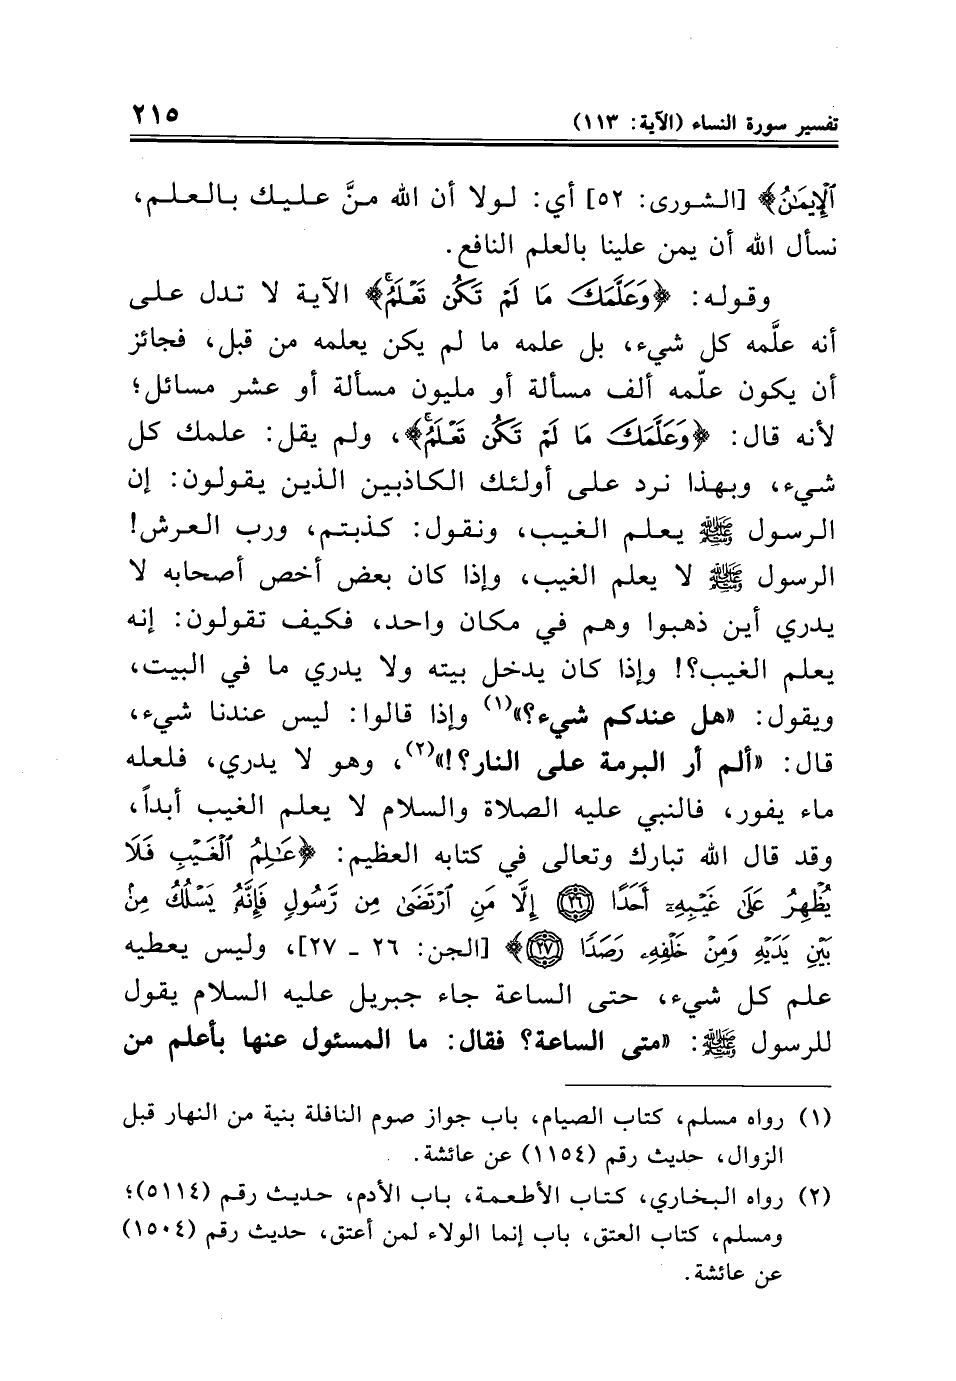 تفسير سورة النساء (الآية: ١١٣) ٢١٥
ٱلْإِيمَٰنُ﴾ [الشورى: ٥٢] أي: لولا أن الله منَّ عليك بالعلم،
نسأل الله أن يمن علينا بالعلم النافع.
وقوله: ﴿وَعَلَّمَكَ مَا لَمْ تَكُن تَعْلَمُۚ﴾ الآية لا تدل على
أنه علَّمه كل شيء، بل علمه ما لم يكن يعلمه من قبل، فجائز
أن يكون علّمه ألف مسألة أو مليون مسألة أو عشر مسائل؛
لأنه قال: ﴿وَعَلَّمَكَ مَا لَمْ تَكُن تَعْلَمُۚ﴾، ولم يقل: علمك كل
شيء، وبهذا نرد على أولئك الكاذبين الذين يقولون: إن
الرسول ﷺ يعلم الغيب، ونقول: كذبتم، ورب العرش!
الرسول ﷺ لا يعلم الغيب، وإذا كان بعض أخص أصحابه لا
يدري أين ذهبوا وهم في مكان واحد، فكيف تقولون: إنه
يعلم الغيب؟! وإذا كان يدخل بيته ولا يدري ما في البيت،
ويقول: «هل عندكم شيء؟»(١) وإذا قالوا: ليس عندنا شيء،
قال: «ألم أر البرمة على النار؟!»(٢)، وهو لا يدري، فلعله
ماء يفور، فالنبي عليه الصلاة والسلام لا يعلم الغيب أبداً،
وقد قال الله تبارك وتعالى في كتابه العظيم: ﴿عَٰلِمُ ٱلْغَيْبِ فَلَا
يُظْهِرُ عَلَىٰ غَيْبِهِۦٓ أَحَدًا ۝٢٦ إِلَّا مَنِ ٱرْتَضَىٰ مِن رَّسُولٍ فَإِنَّهُۥ يَسْلُكُ مِنۢ
بَيْنِ يَدَيْهِ وَمِنْ خَلْفِهِۦ رَصَدًا ۝٢٧﴾ [الجن: ٢٦ ـ ٢٧]، وليس يعطيه
علم كل شيء، حتى الساعة جاء جبريل عليه السلام يقول
للرسول ﷺ: «متى الساعة؟ فقال: ما المسئول عنها بأعلم من
(١) رواه مسلم، كتاب الصيام، باب جواز صوم النافلة بنية من النهار قبل
الزوال، حديث رقم (١١٥٤) عن عائشة.
(٢) رواه البخاري، كتاب الأطعمة، باب الأدم، حديث رقم (٥١١٤)؛
ومسلم، كتاب العتق، باب إنما الولاء لمن أعتق، حديث رقم (١٥٠٤)
عن عائشة.